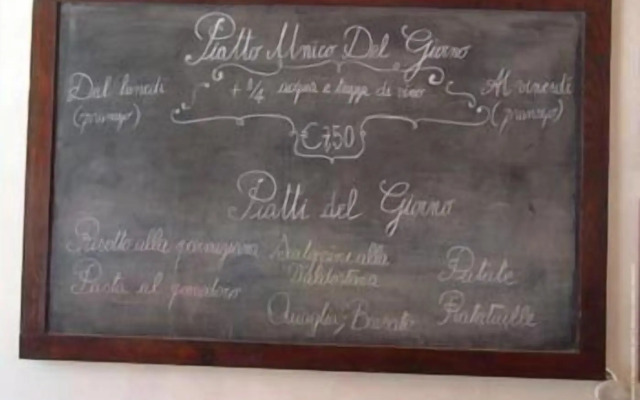 Piatto Unico Del Giorno
Dal lunedi + 1/4 acqua e tazza di vino Al venerdi
(pranzo) (pranzo)
€7,50
Piatti del Giorno
Risotto alla parmigiana Scaloppine alla
Valdostana Patate
Pasta al pomodoro
Quaglia, Brasato Ratatuille